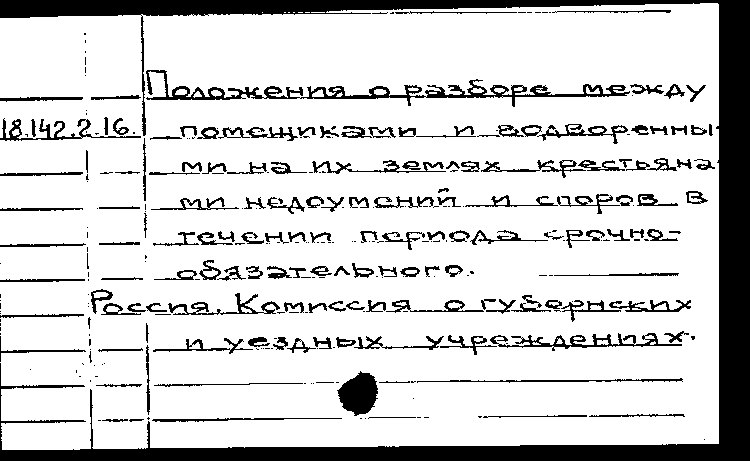 Положения о разборе между
18.142.2.16. помещиками и водворенны-
ми на их землях крестьяна-
ми недоумений и споров в
течении периода срочно-
обязательного.
Россия. Комиссия о губернских
и уездных учреждениях.